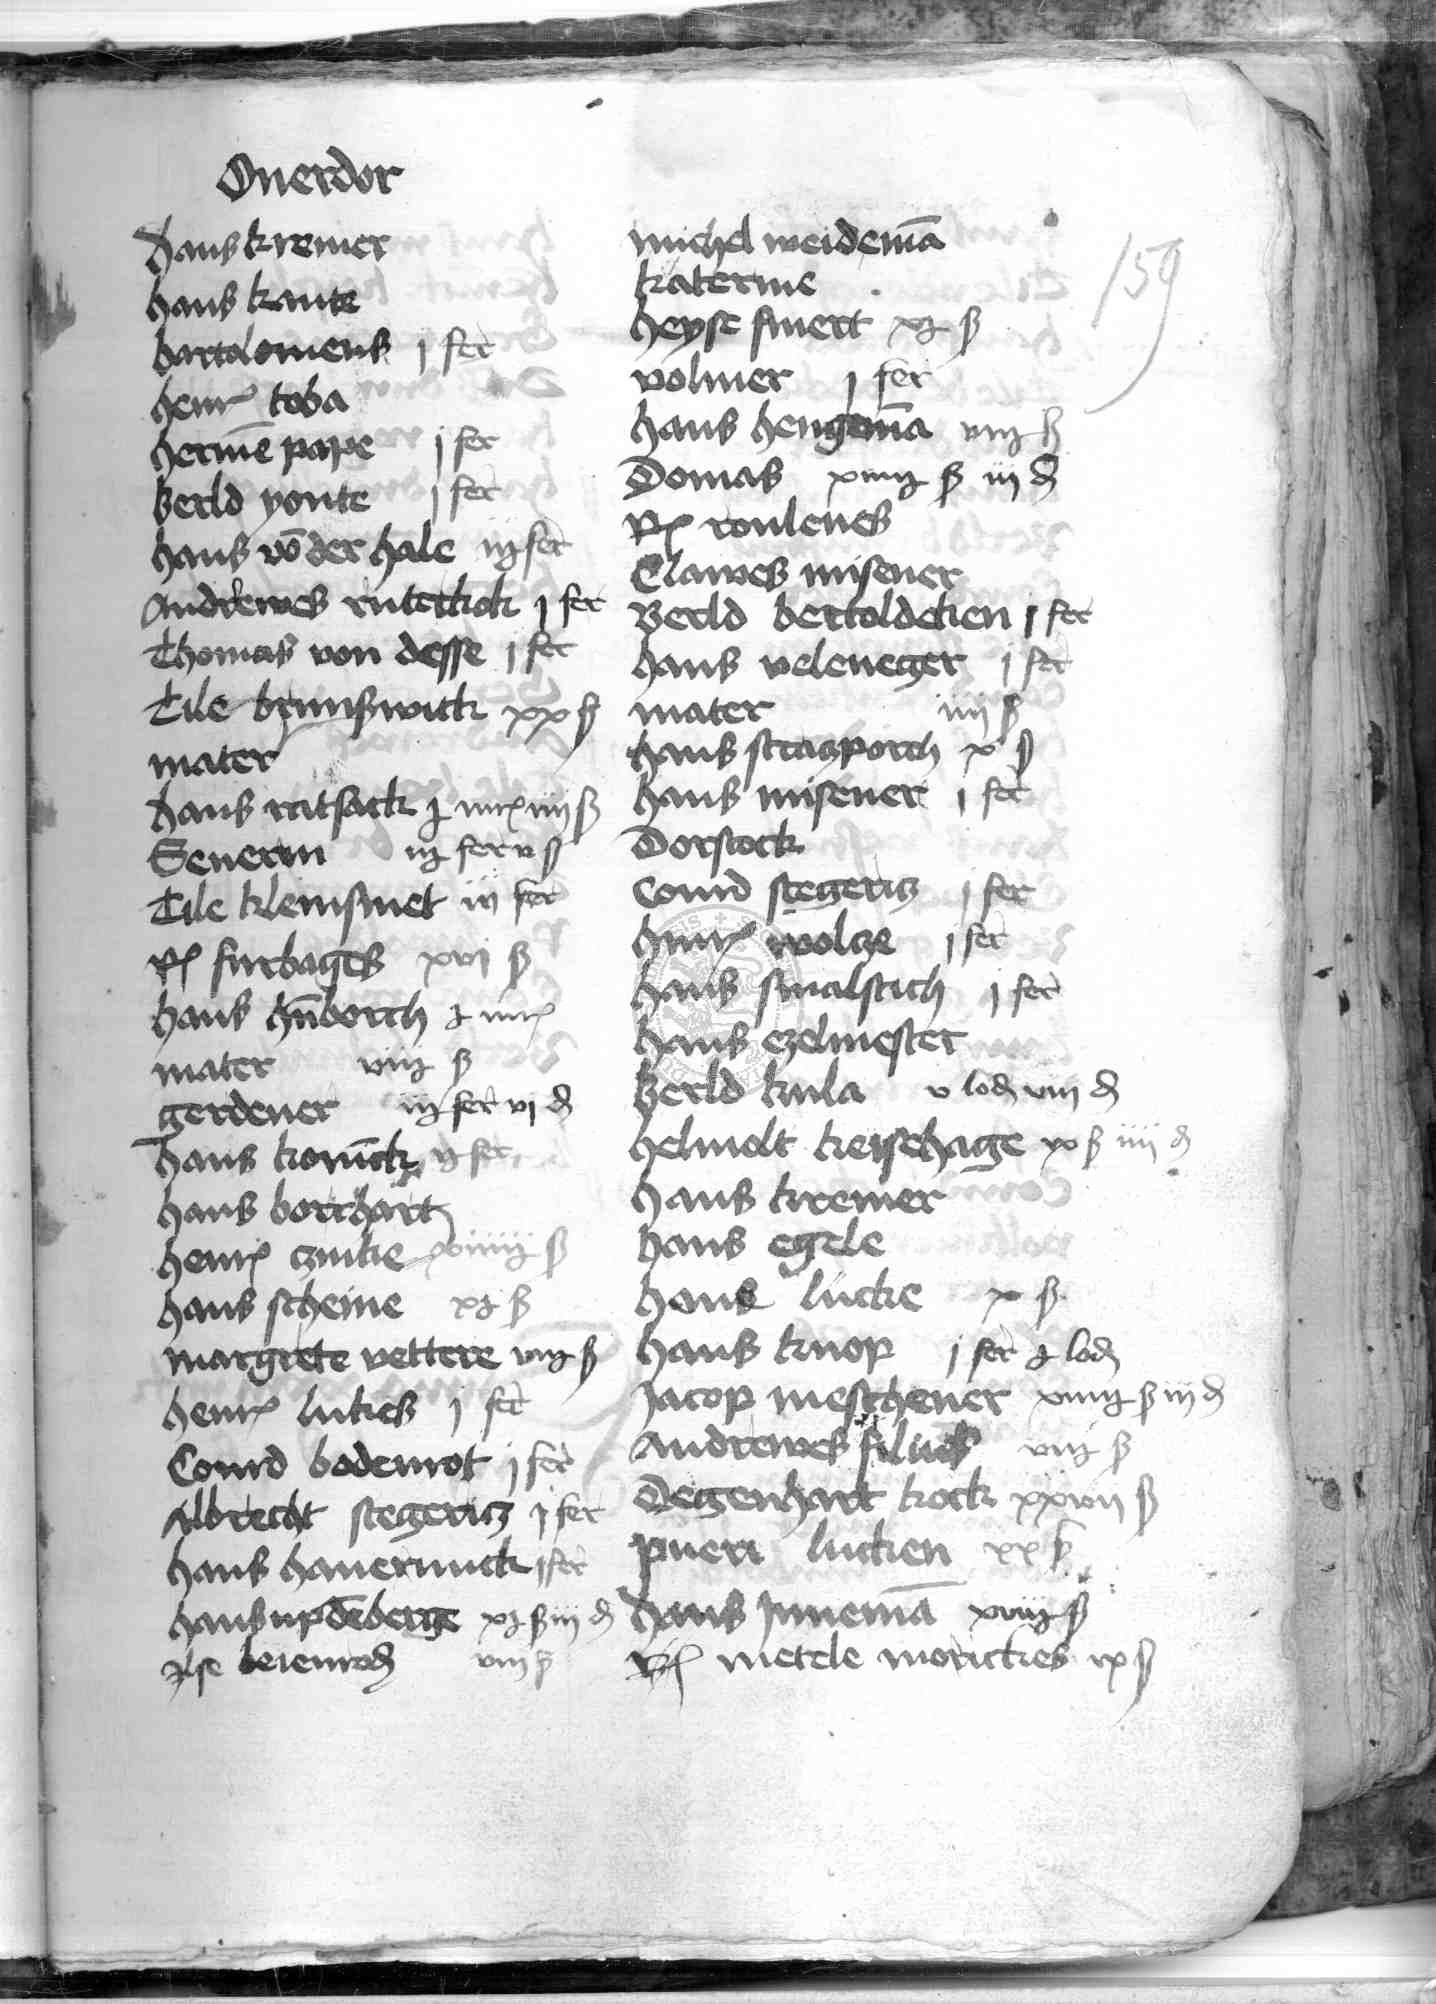 Ouerdor
hans kremer
hans kante
bartolomeus j fer
henr toba
hermē pape j fer
Berld yonte j fer
hans vō der hale iij fer
Andrewes rutekok j fer
Thomas von desse j fer
Tile brunswick xx ß
mater
hans ratsack j mr iiij ß
Seuerin iij fer v ß
Tile klensmet iij fer
Rͻ furbages xvj ß
hans hūborch j mr
mater viij ß
gerdener iij fer vj d
hans konīck ij fer
hans borchart
henr czinke xiiij ß
hans scheme xj ß
margrete vettere viij ß
henr lukes j fer
Conrd bodenrot j fer
Albrecht stegericz j fer
hans hauernick j fer
hans updēberge xj ß iij d
Ilse beienrod viij ß
michel weidemā
katerine
heyse swert xj ß
volmer j fer
hans hengemā viij ß
Domas xiiij ß iij d
Rͻ rouleues
Clawes misener
Berld bertoldeken j fer
hans veleneger j fer
mater iiij ß
hans straczporch x ß
hans misener j fer
Dorstock
Conrd stegericz j fer
hinr wolcze j fer
hans smalstich j fer
hans eczelmester
Berld kula v lod viij d
helmolt keisehage x ß iiij d
hans kremer
hans egele
hans lucke x ß
hans knop j fer j lod
Jacop meschener xiiij ß iij d
Andrewes filius viij ß
Degenhart kock xxvij ß
pueri lucken xx ß
hans junemā xviij ß
Rͻ metele morickes ix ß
159